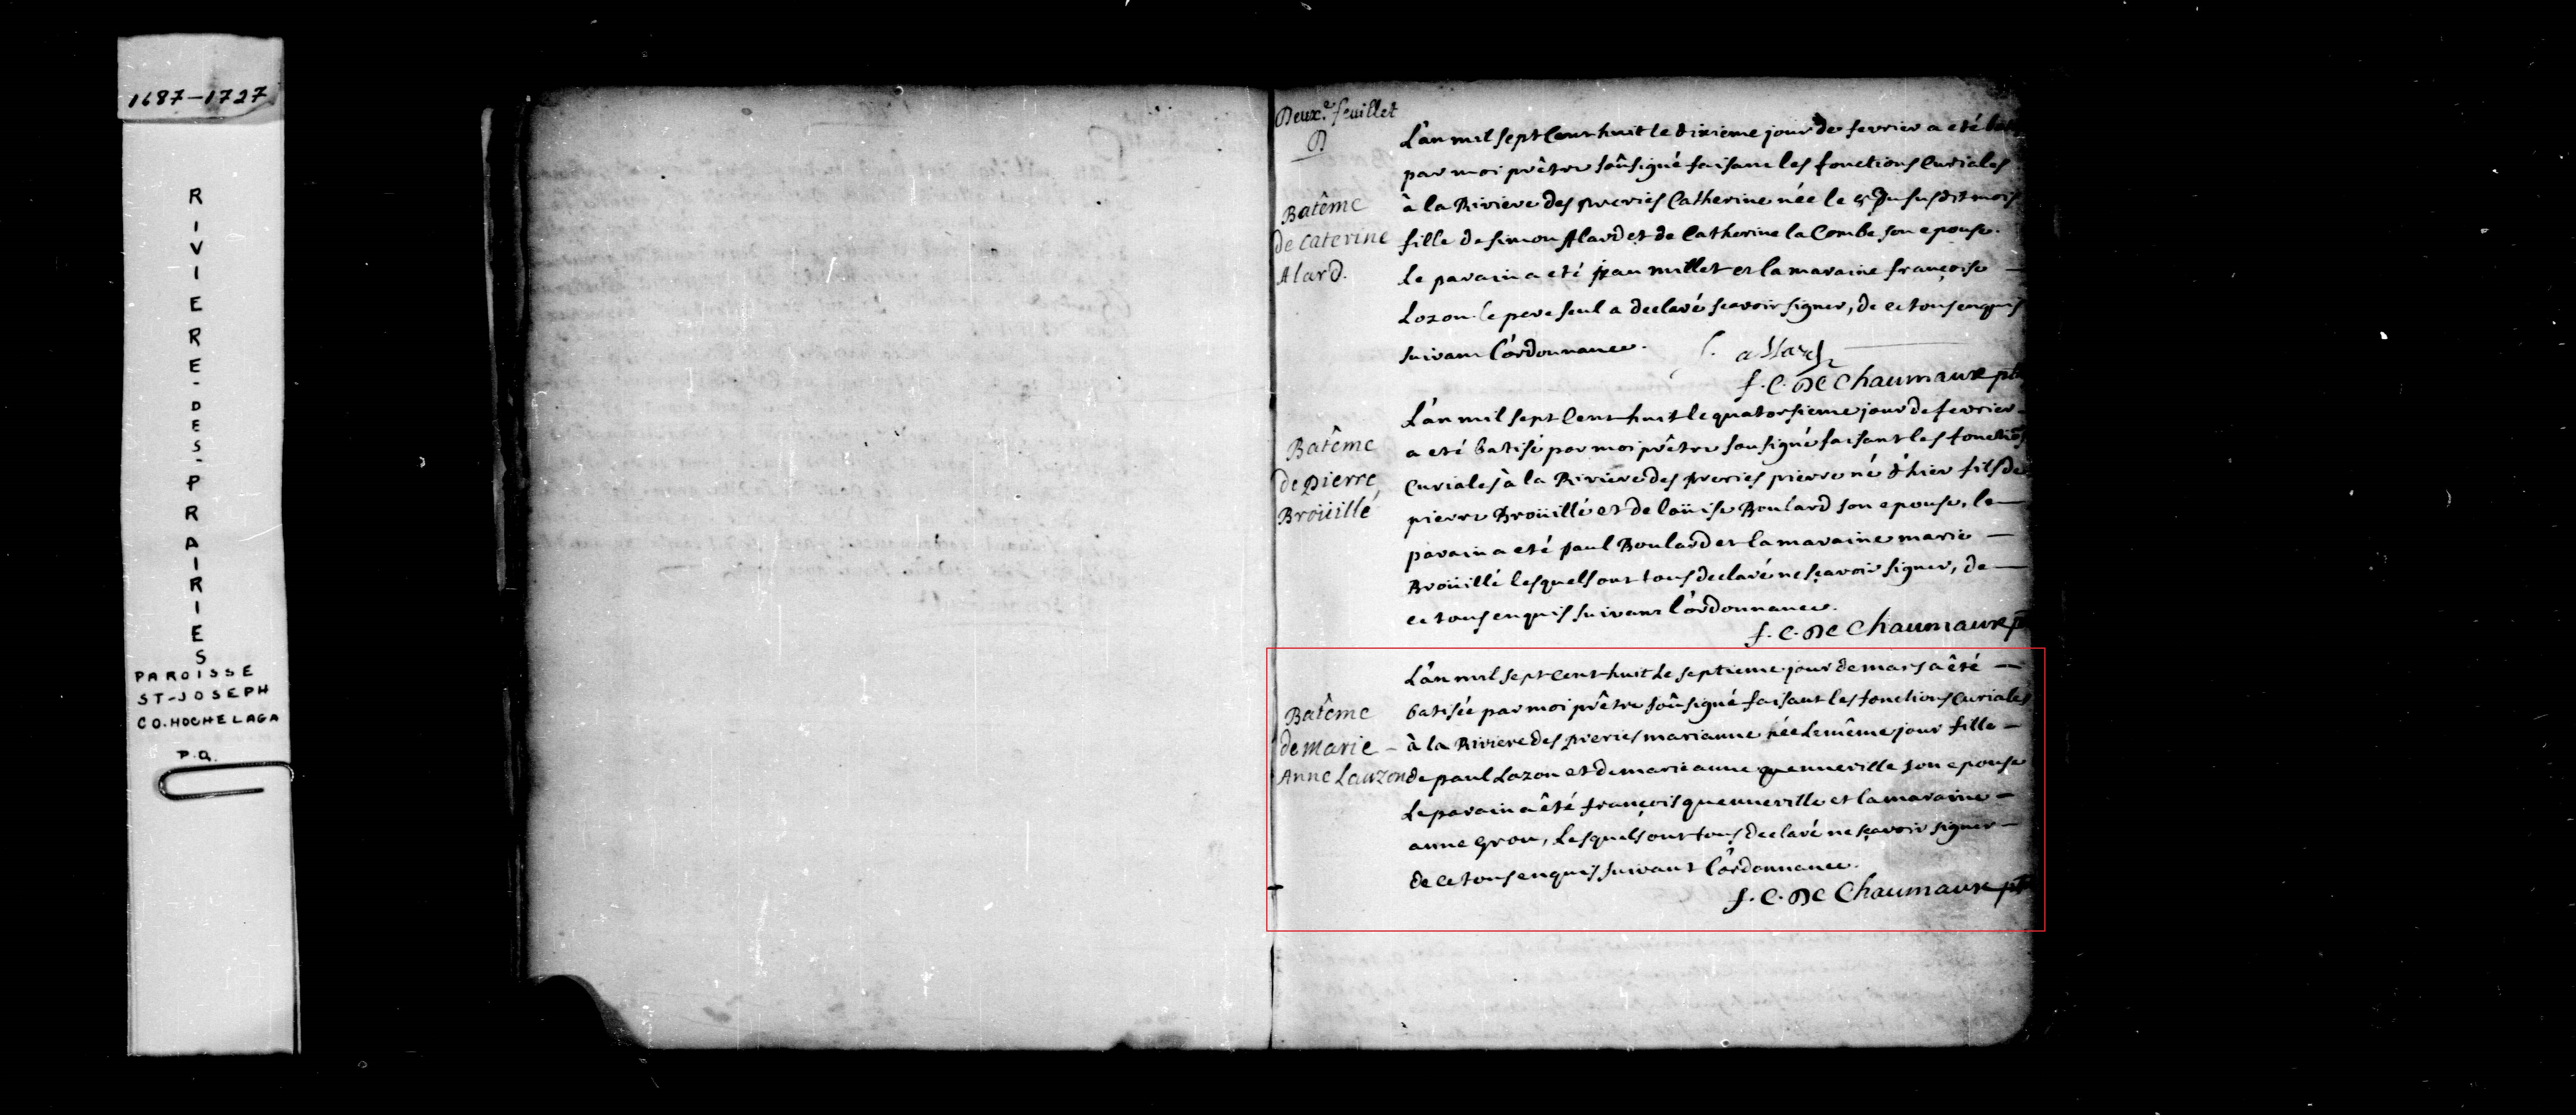 1687-1727
RIVIERE-DES-PRAIRIES
PAROISSE
ST-JOSEPH
CO. HOCHELAGA
P.Q.
Deux.e feuillet
B
Batême
de Caterine
Alard.
L'an mil sept Cent huit le dixieme jour de fevrier a eté
par moi prêtre soûsigné faisant les fonctions Curiales
à la Riviere des preries Catherine née le 9 du susdit mois
fille de simon Alard et de Catherine la Combe son epouse.
Le parain a eté jean millet et la maraine françoise —
Lozon le pere seul a declaré sçavoir signer, de ce tous enquis
suivant l'ordonnance.
S. allard
f. C. De Chaumaux ptr
Batême
de pierre
Broüillé
L'an mil sept Cent huit le quatorsieme jour de fevrier
a eté batisé par moi prêtre sousigné faisant les fonctiõs
Curiales à la Riviere des preries pierre né d'hier fils de
pierre Broüillé et de loüise Boulard son epouse, le —
parain a eté paul Boulard et la maraine marie —
Broüillé lesquels ont tous declaré ne sçavoir signer, de —
ce tous enquis suivant l'ordonnance.
f. C. De Chaumaux p
Batême
de marie —
Anne Lauzon
L'an mil sept cent huit le septieme jour de mars a êté —
batisée par moi prêtre soûsigné faisant les fonctions Curiales
à la Riviere des preries marianne née le même jour fille —
de paul Lozon et de marie anne quenneville son epouse
Le parain a êté françois quenneville et la maraine —
anne Grou, Lesquels ont tous declaré ne sçavoir signer —
de ce tous enquis suivant l'ordonnance.
f. C. De Chaumaux ptr